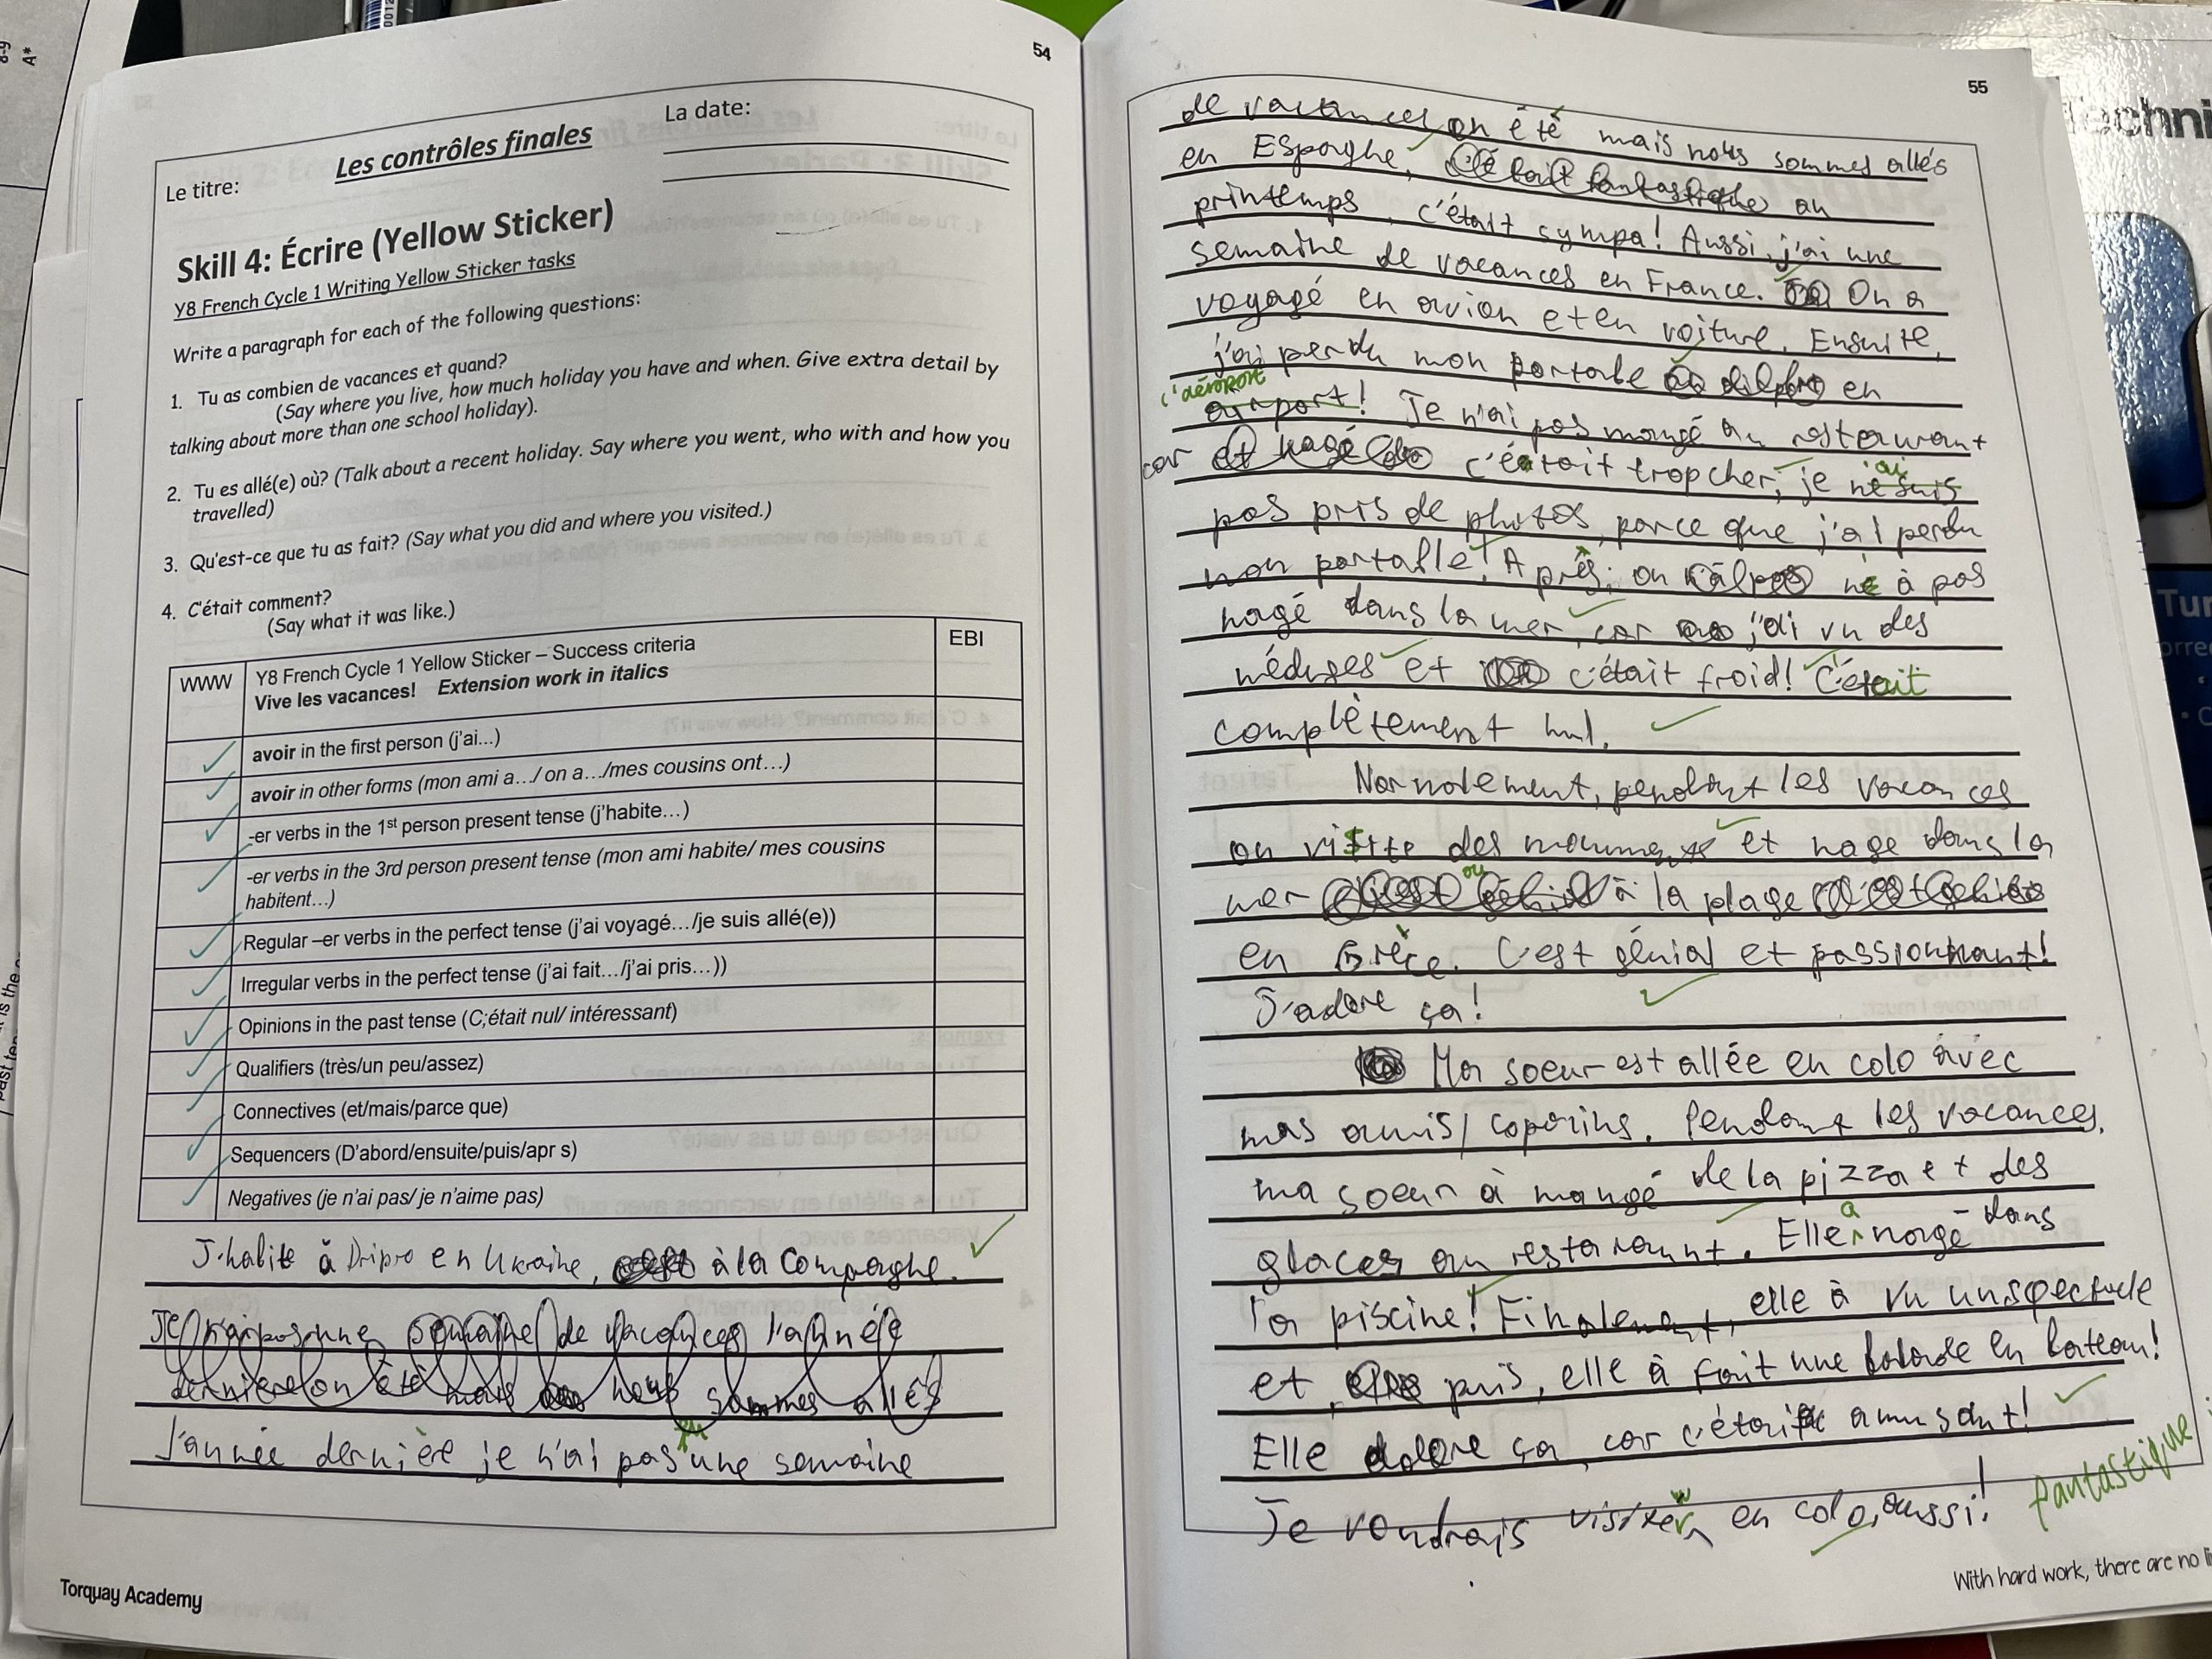 54
Les contrôles finales
La date:
Le titre:
Skill 4: Écrire (Yellow Sticker)
Y8 French Cycle 1 Writing Yellow Sticker tasks
Write a paragraph for each of the following questions:
1. Tu as combien de vacances et quand?
(Say where you live, how much holiday you have and when. Give extra detail by
talking about more than one school holiday).
2. Tu es allé(e) où? (Talk about a recent holiday. Say where you went, who with and how you
travelled)
3. Qu'est-ce que tu as fait? (Say what you did and where you visited.)
4. C'était comment?
(Say what it was like.)
WWW
Y8 French Cycle 1 Yellow Sticker – Success criteria
Vive les vacances! Extension work in italics
EBI
avoir in the first person (j'ai...)
avoir in other forms (mon ami a.../ on a.../mes cousins ont...)
-er verbs in the 1st person present tense (j'habite...)
-er verbs in the 3rd person present tense (mon ami habite/ mes cousins
habitent...)
Regular –er verbs in the perfect tense (j'ai voyagé.../je suis allé(e))
Irregular verbs in the perfect tense (j'ai fait.../j'ai pris...))
Opinions in the past tense (C;était nul/ intéressant)
Qualifiers (très/un peu/assez)
Connectives (et/mais/parce que)
Sequencers (D'abord/ensuite/puis/apr s)
Negatives (je n'ai pas/ je n'aime pas)
J'habite à Dnipro en Ukraine, à la compagne.
Je n'ai pas une semaine de vacances l'année
dernière on été mais nous sommes allés
l'année dernière je n'ai pas une semaine
Torquay Academy
55
de vacances on été mais nous sommes allés
en Espaghe, c'était fantastique au
printemps, c'était sympa! Aussi, j'ai une
semaine de vacances en France. On a
voyagé en avion et en voiture. Ensuite,
j'ai perdu mon portable en
l'aéroport
airport! Je n'ai pas mangé au restaurant
car c'était trop cher, je ne suis
ai
pas pris de photos, parce que j'ai perdu
mon portable! Après, on ne à pas
nagé dans la mer, car j'ai vu des
méduses et c'était froid! C'était
complètement nul.
Normalement, pendant les vacances
on visite des monuments et nage dans la
ou
mer à la plage
en Grèce. C'est génial et passionnant!
J'adore ça!
Ma soeur est allée en colo avec
mas amis/copains. Pendant les vacances,
ma soeur à mangé de la pizza et des
a
glaces au restaraunt. Elle nagé dans
la piscine! Finalement, elle à vu un spectacle
et, puis, elle à fait une balade en bateau!
Elle adore ça, car c'était amusant!
Je voudrais visiter en colo, aussi!
fantastique
With hard work, there are no li
Techni
Tur